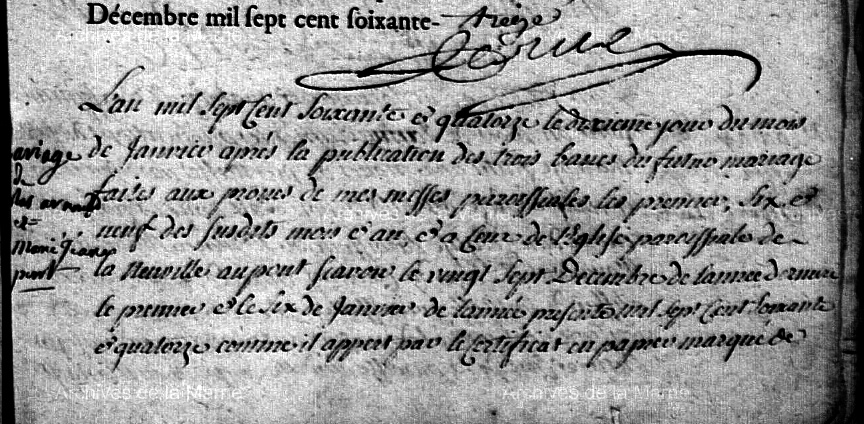 Décembre mil sept cent soixante- treize
L'an mil sept Cent Soixante et quatorze le dixieme jour du mois
de Janvier après la publication des trois bancs du futur mariage
faites aux prones de mes messes paroissiales les premier, Six et
neuf des susdits mois et an, et a Celle de l'Eglise paroissiale de
la Neuville au pont scavoir le vingt Sept Decembre de lannée derniere
le premier et le Six de Janvier de lannée presente mil sept Cent Soixante
et quatorze comme il appert par le Certificat en papier marqué de
ariage
de
et
Marie
pont
Archives de la Marne
Archives de la Marne
Archives de la Marne
Archives de la Marne